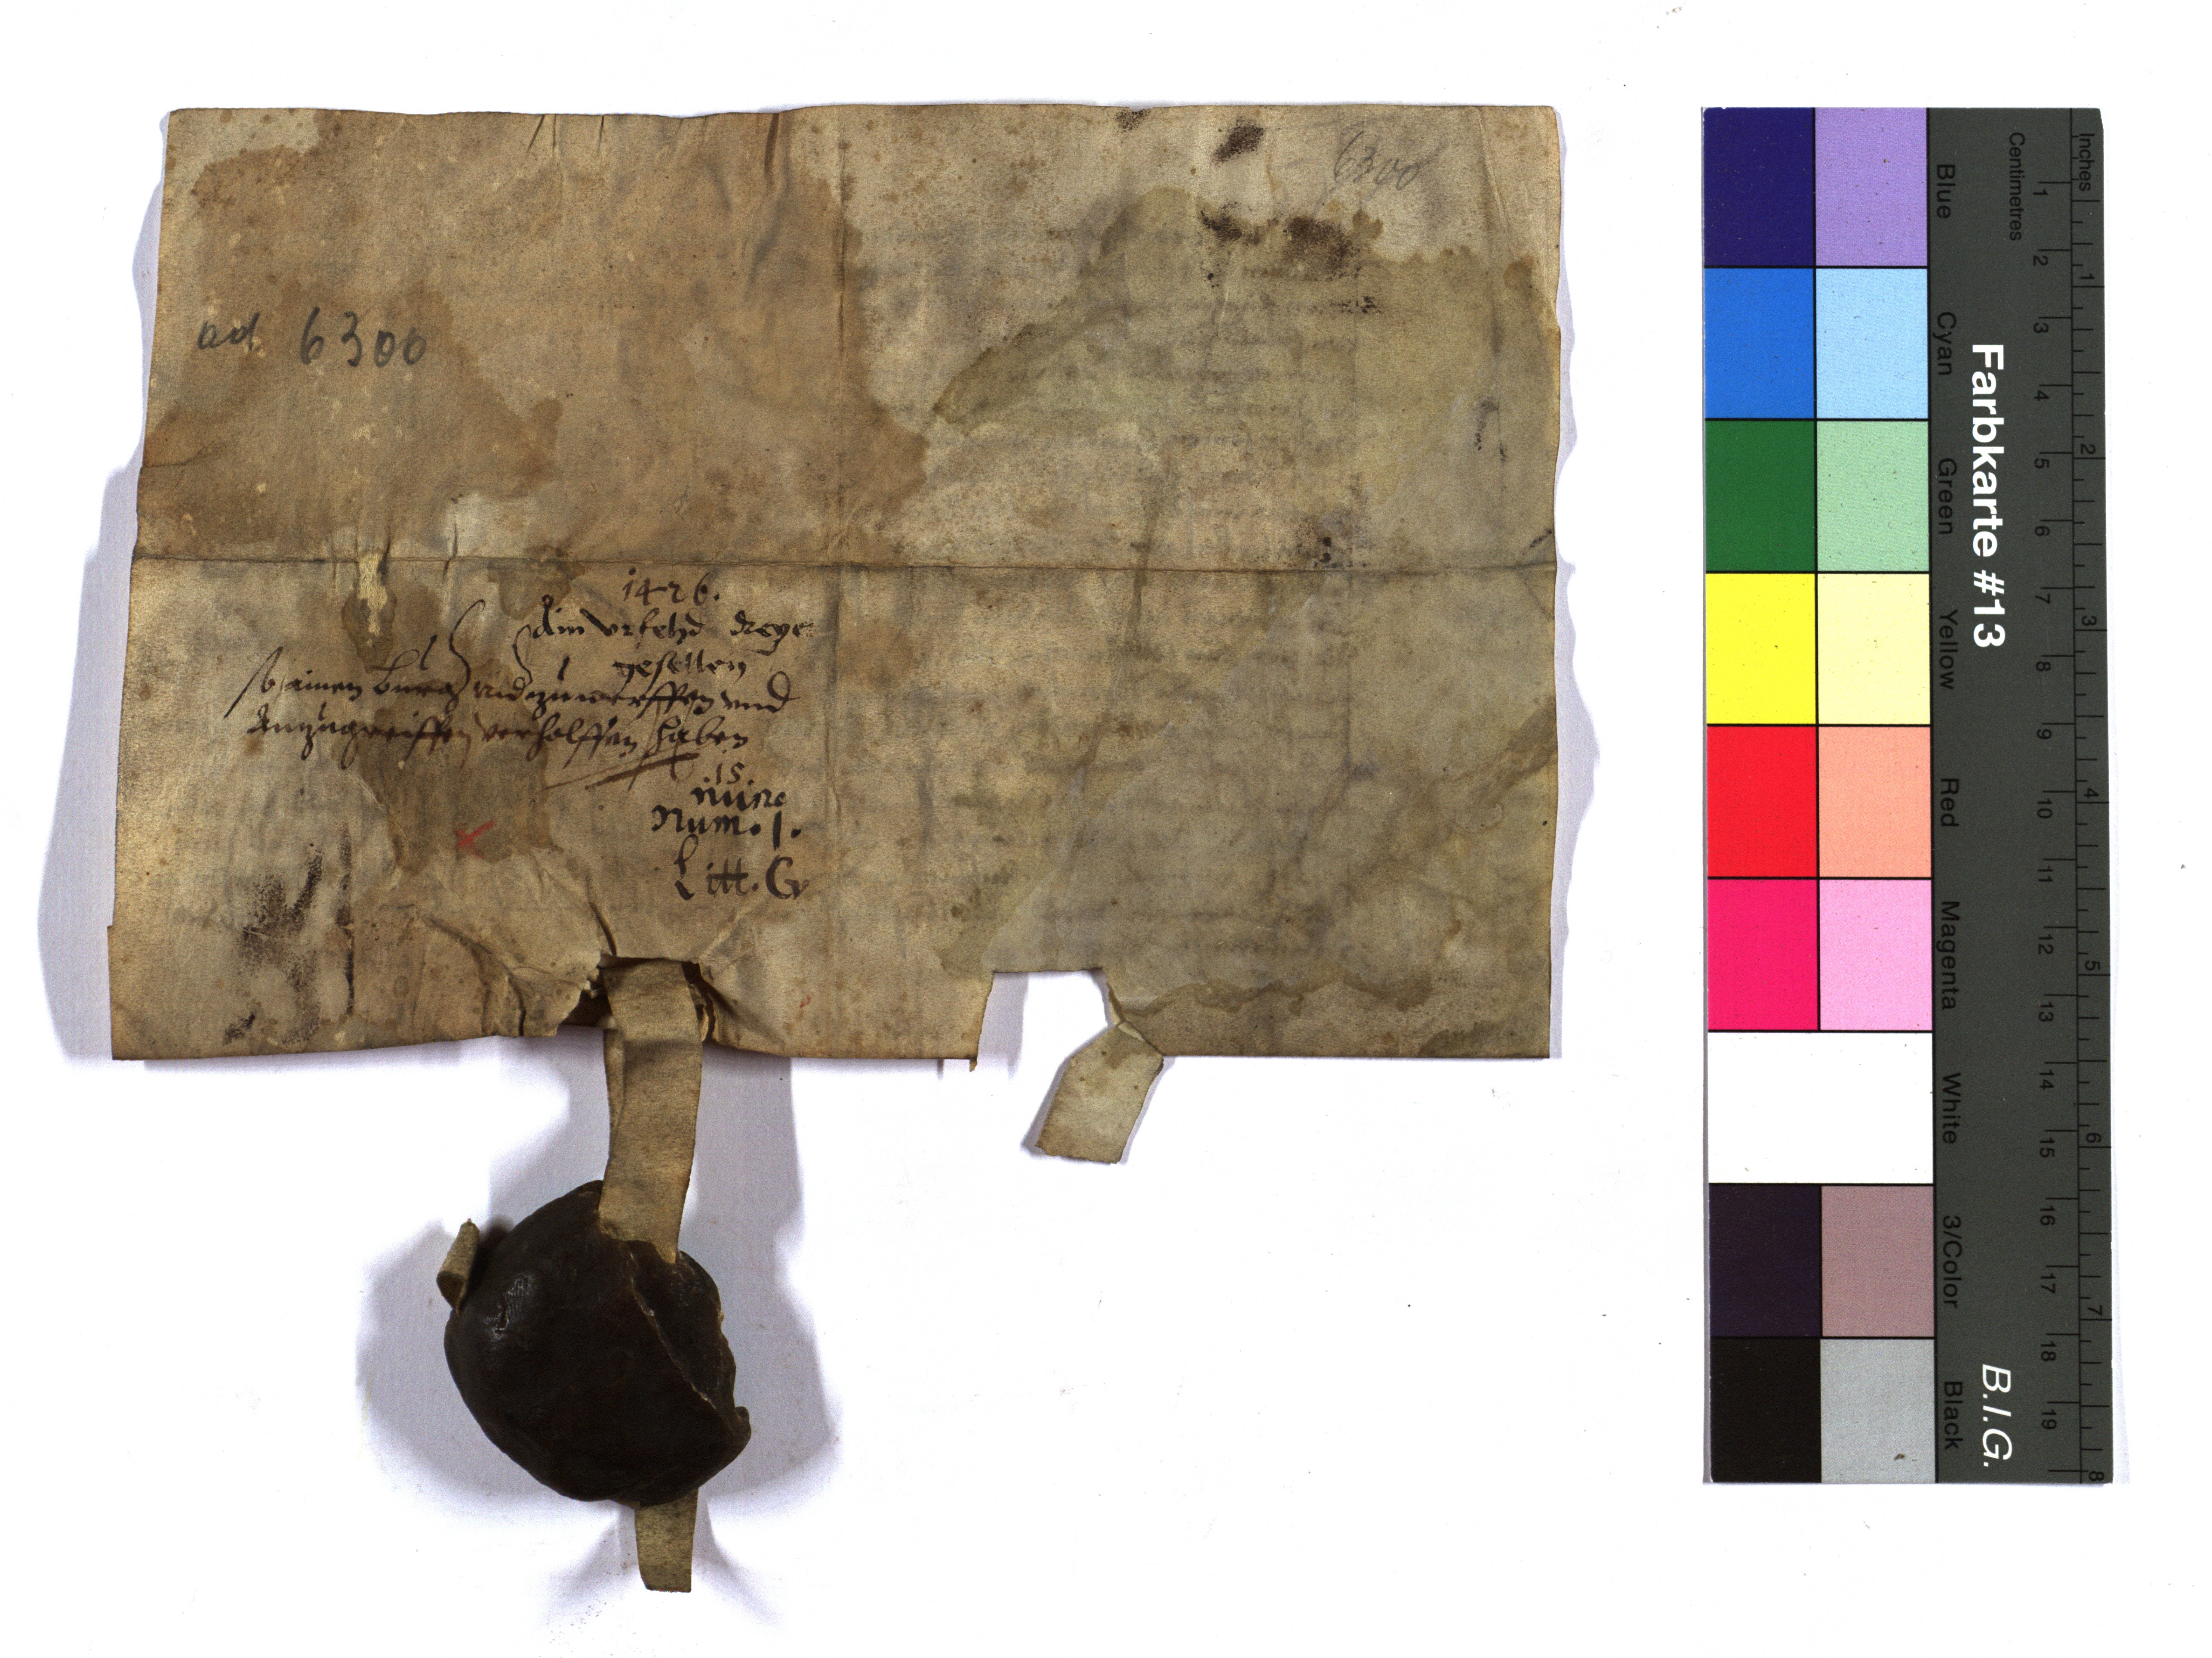 6300
ad 6300
1426.
Ain vrfehd dreye
gesellen
so ainen burg nidzuwerffen vnd
Anzugreiffen verholffen haben
.15.
Num. 1.
Litt. G
Farbkarte #13
B.I.G.
Blue Cyan Green Yellow Red Magenta White 3/Color Black
Centimetres
1 2 3 4 5 6 7 8 9 10 11 12 13 14 15 16 17 18 19
Inches
1 2 3 4 5 6 7 8